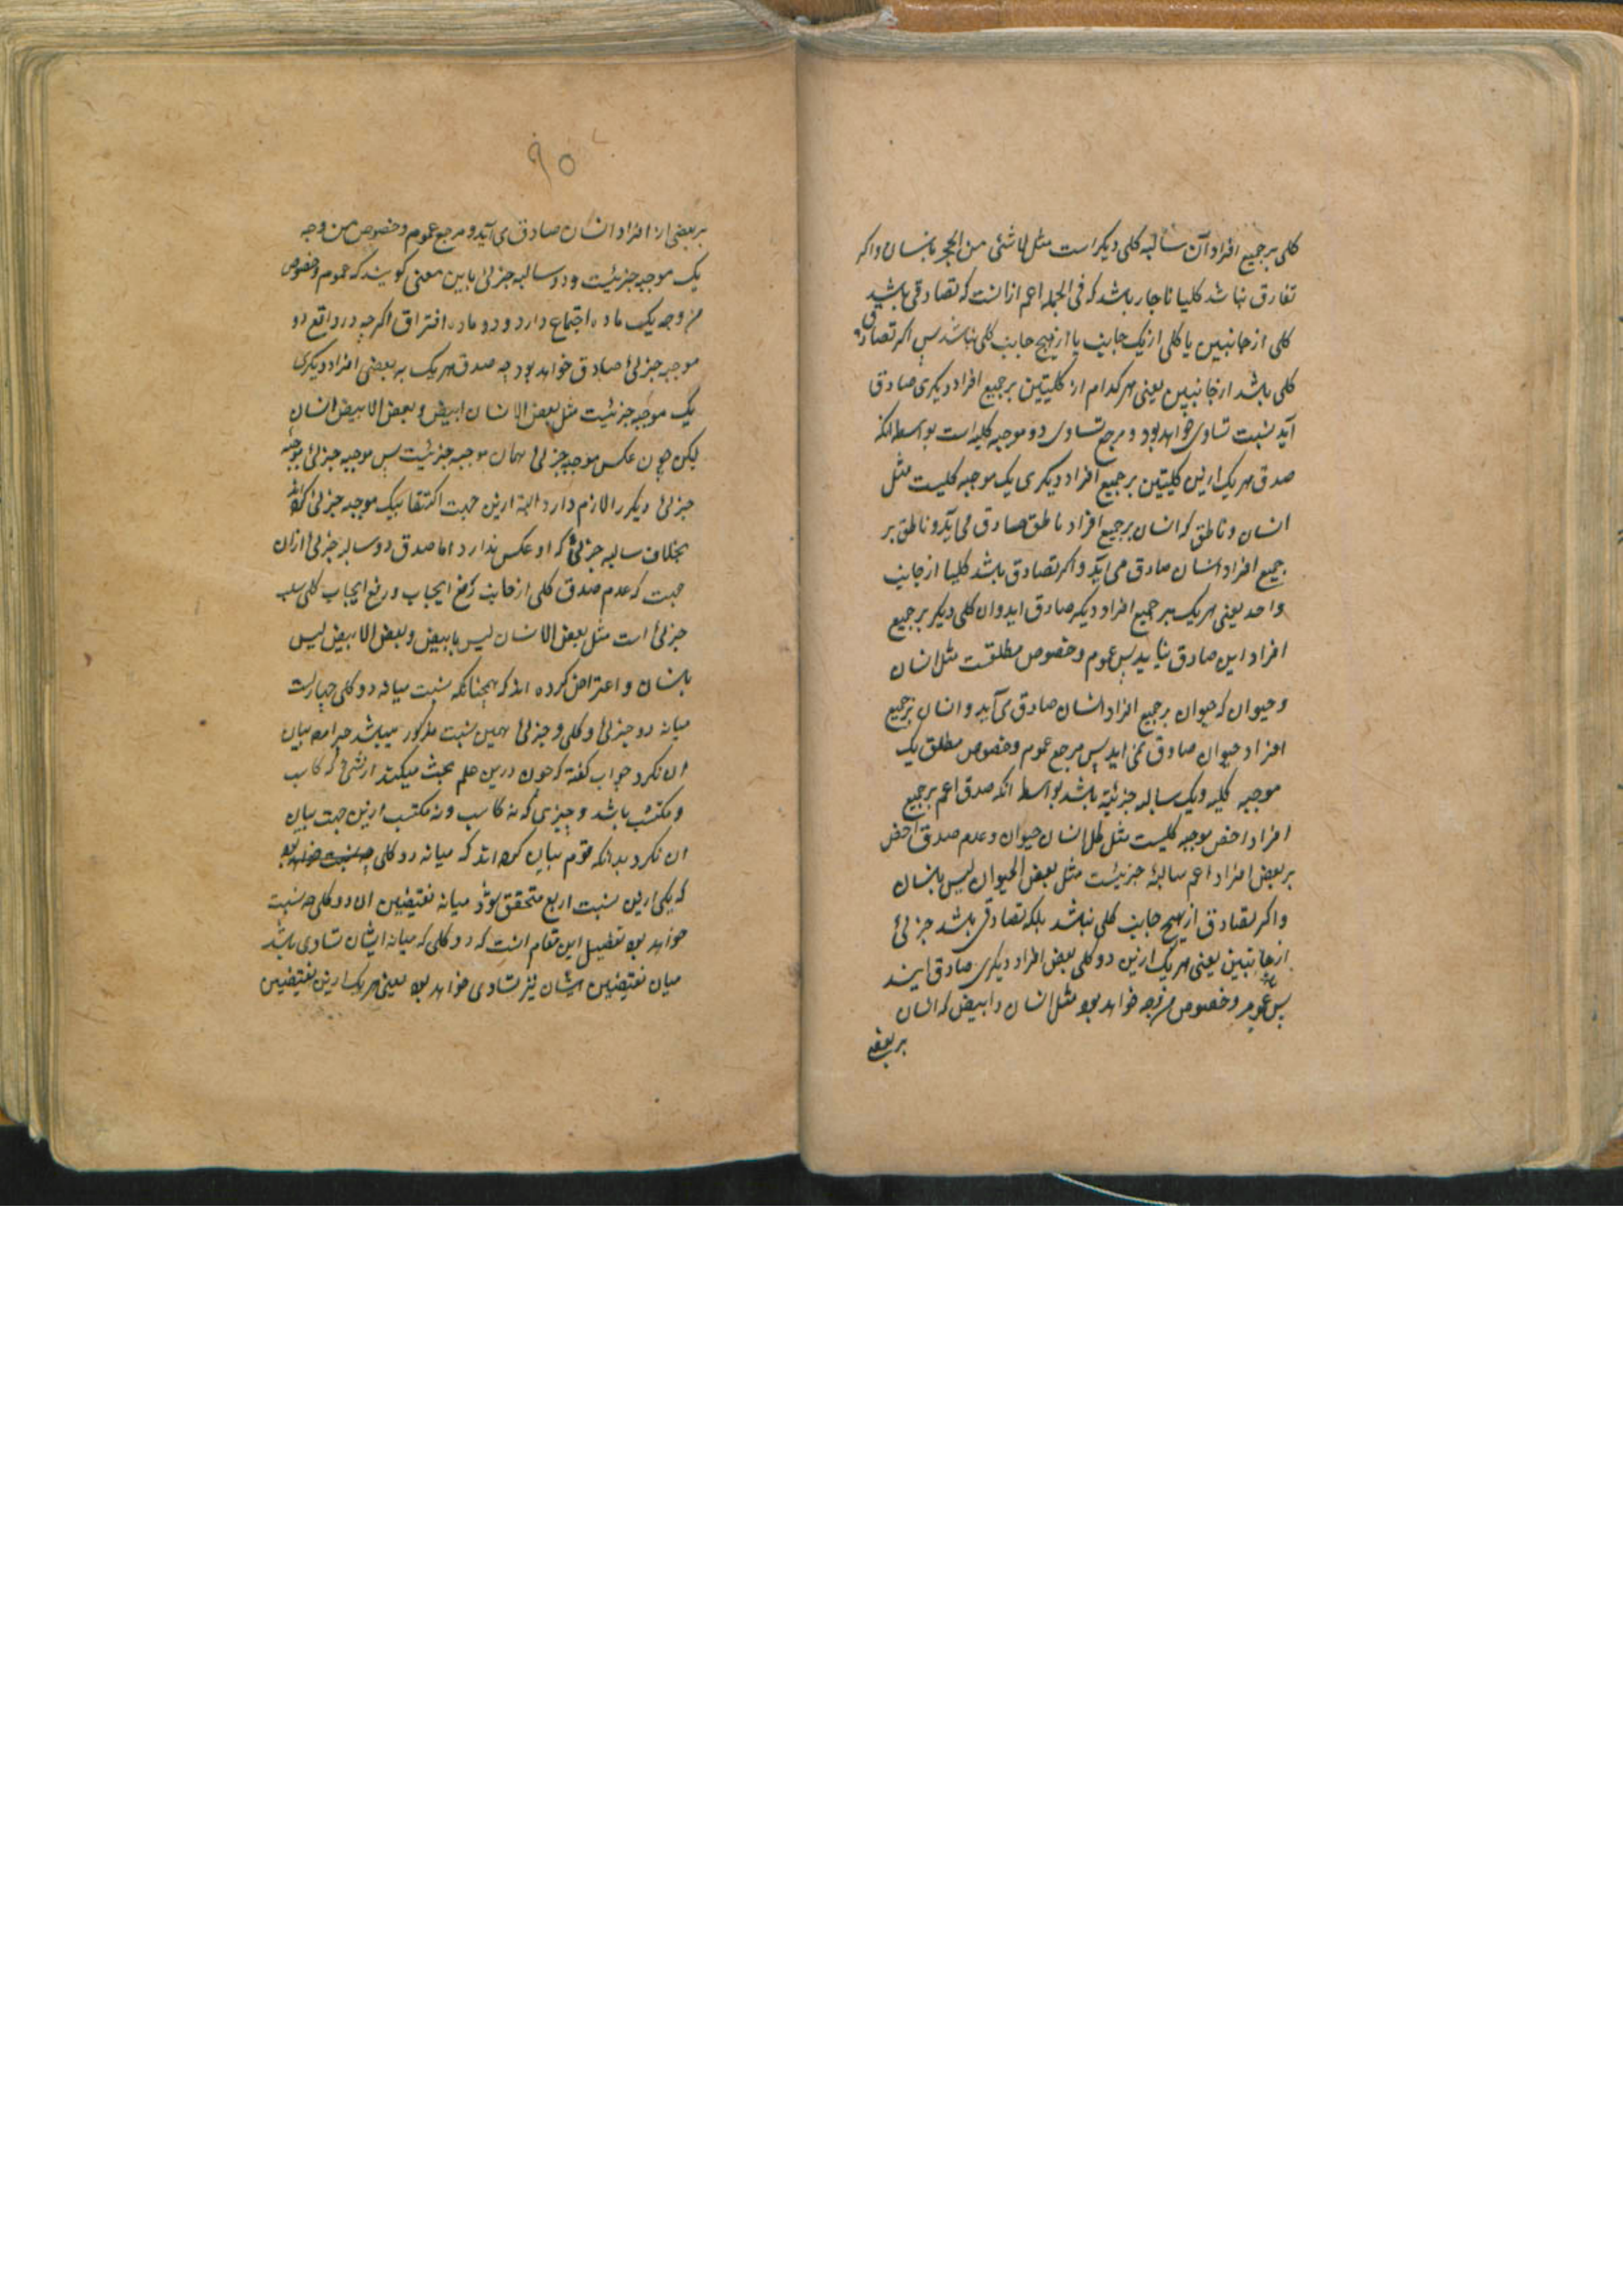 کلی بر جمیع افراد آن سالبه کلی دیگر است مثل لاشئی من الحجر بانسان واکر
تفارق نباشد کلیا ناچار باشد که فی الجمله اعم ازانست که تصادقی باشد
کلی از جانبین یا کلی از یک جانب یا از هیچ جانب کلی نباشد پس اکر تصادق
کلی باشد از جانبین یعنی هر کدام از کلیتین بر جمیع افراد دیکری صادق
آید نسبت تساوی خواهد بود و مرجع تساوی دو موجبه کلیه است بواسطه انکه
صدق هر یک ازین کلیتین بر جمیع افراد دیکری یک موجبه کلیست مثل
انسان و ناطق که انسان بر جمیع افراد ناطق صادق می آید و ناطق بر
جمیع افراد انسان صادق می آید و اکر تصادق باشد کلیا از جانب
واحد یعنی هر یک بر جمیع افراد دیکر صادق اید وان کلی دیکر بر جمیع
افراد این صادق نیاید پس عموم و خصوص مطلقست مثل انسان
و حیوان که حیوان بر جمیع افراد انسان صادق می آید و انسان بر جمیع
افراد حیوان صادق نمی اید پس مرجع عموم و خصوص مطلق یک
موجبه کلیه و یک سالبه جزئیه باشد بواسطه انکه صدق اعم بر جمیع
افراد اخص موجبه کلیست مثل کل انسان حیوان و عدم صدق اخص
بر بعض افراد اعم سالبه جزئیست مثل بعض الحیوان لیس بانسان
واکر تصادق از هیچ جانب کلی نباشد بلکه تصادقی باشد جزئی
از جانبین یعنی هر یک ازین دو کلی بعض افراد دیکری صادق ایند
پس عموم و خصوص من وجه خواهد بود مثل انسان و ابیض که انسان
بر بعضی
۹۵
بر بعضی از افراد انسان صادق می آید و مرجع عموم و خصوص من وجه
یک موجبه جزئیست و دو سالبه جزئی باین معنی کویند که عموم و خصوص
من وجه یک ماده اجتماع دارد و دو ماده افتراق اکرچه در واقع دو
موجبه جزئی صادق خواهد بود چه صدق هر یک به بعضی افراد دیکری
یک موجبه جزئیست مثل بعض الانسان ابیض و بعض الابیض انسان
لیکن چون عکس موجبه جزئی همان موجبه جزئیست پس موجبه جزئی موجبه
جزئی دیکر را لازم دارد البته ازین جهت اکتفا بیک موجبه جزئی کرده اند
بخلاف سالبه جزئی که او عکس ندارد اما صدق دو سالبه جزئی ازان
جهت که عدم صدق کلی از جانبت رفع ایجاب و رفع ایجاب کلی سلب
جزئی است مثل بعض الانسان لیس بابیض و بعض الابیض لیس
بانسان و اعتراض کرده اند که همچنانکه نسبت میانه دو کلی چهارست
میانه دو جزئی و کلی و جزئی همین نسبت مذکور میباشد چرا مص بیان
ان نکرد جواب کفته که چون درین علم بحث میکند از شیء که کاسب
و مکتسب باشد و جزئی که نه کاسب و نه مکتسب ازین جهت بیان
ان نکرد بدانکه قوم بیان کرده اند که میانه دو کلی چه نسبت خواهد بود
که یکی ازین نسبت اربع متحقق شود میانه نقیضین ان دو کلی چه نسبت
خواهد بود تفصیل این مقام انست که دو کلی که میانه ایشان تساوی باشد
میان نقیضین ایشان نیز تساوی خواهد بود یعنی هر یک ازین نقیضین